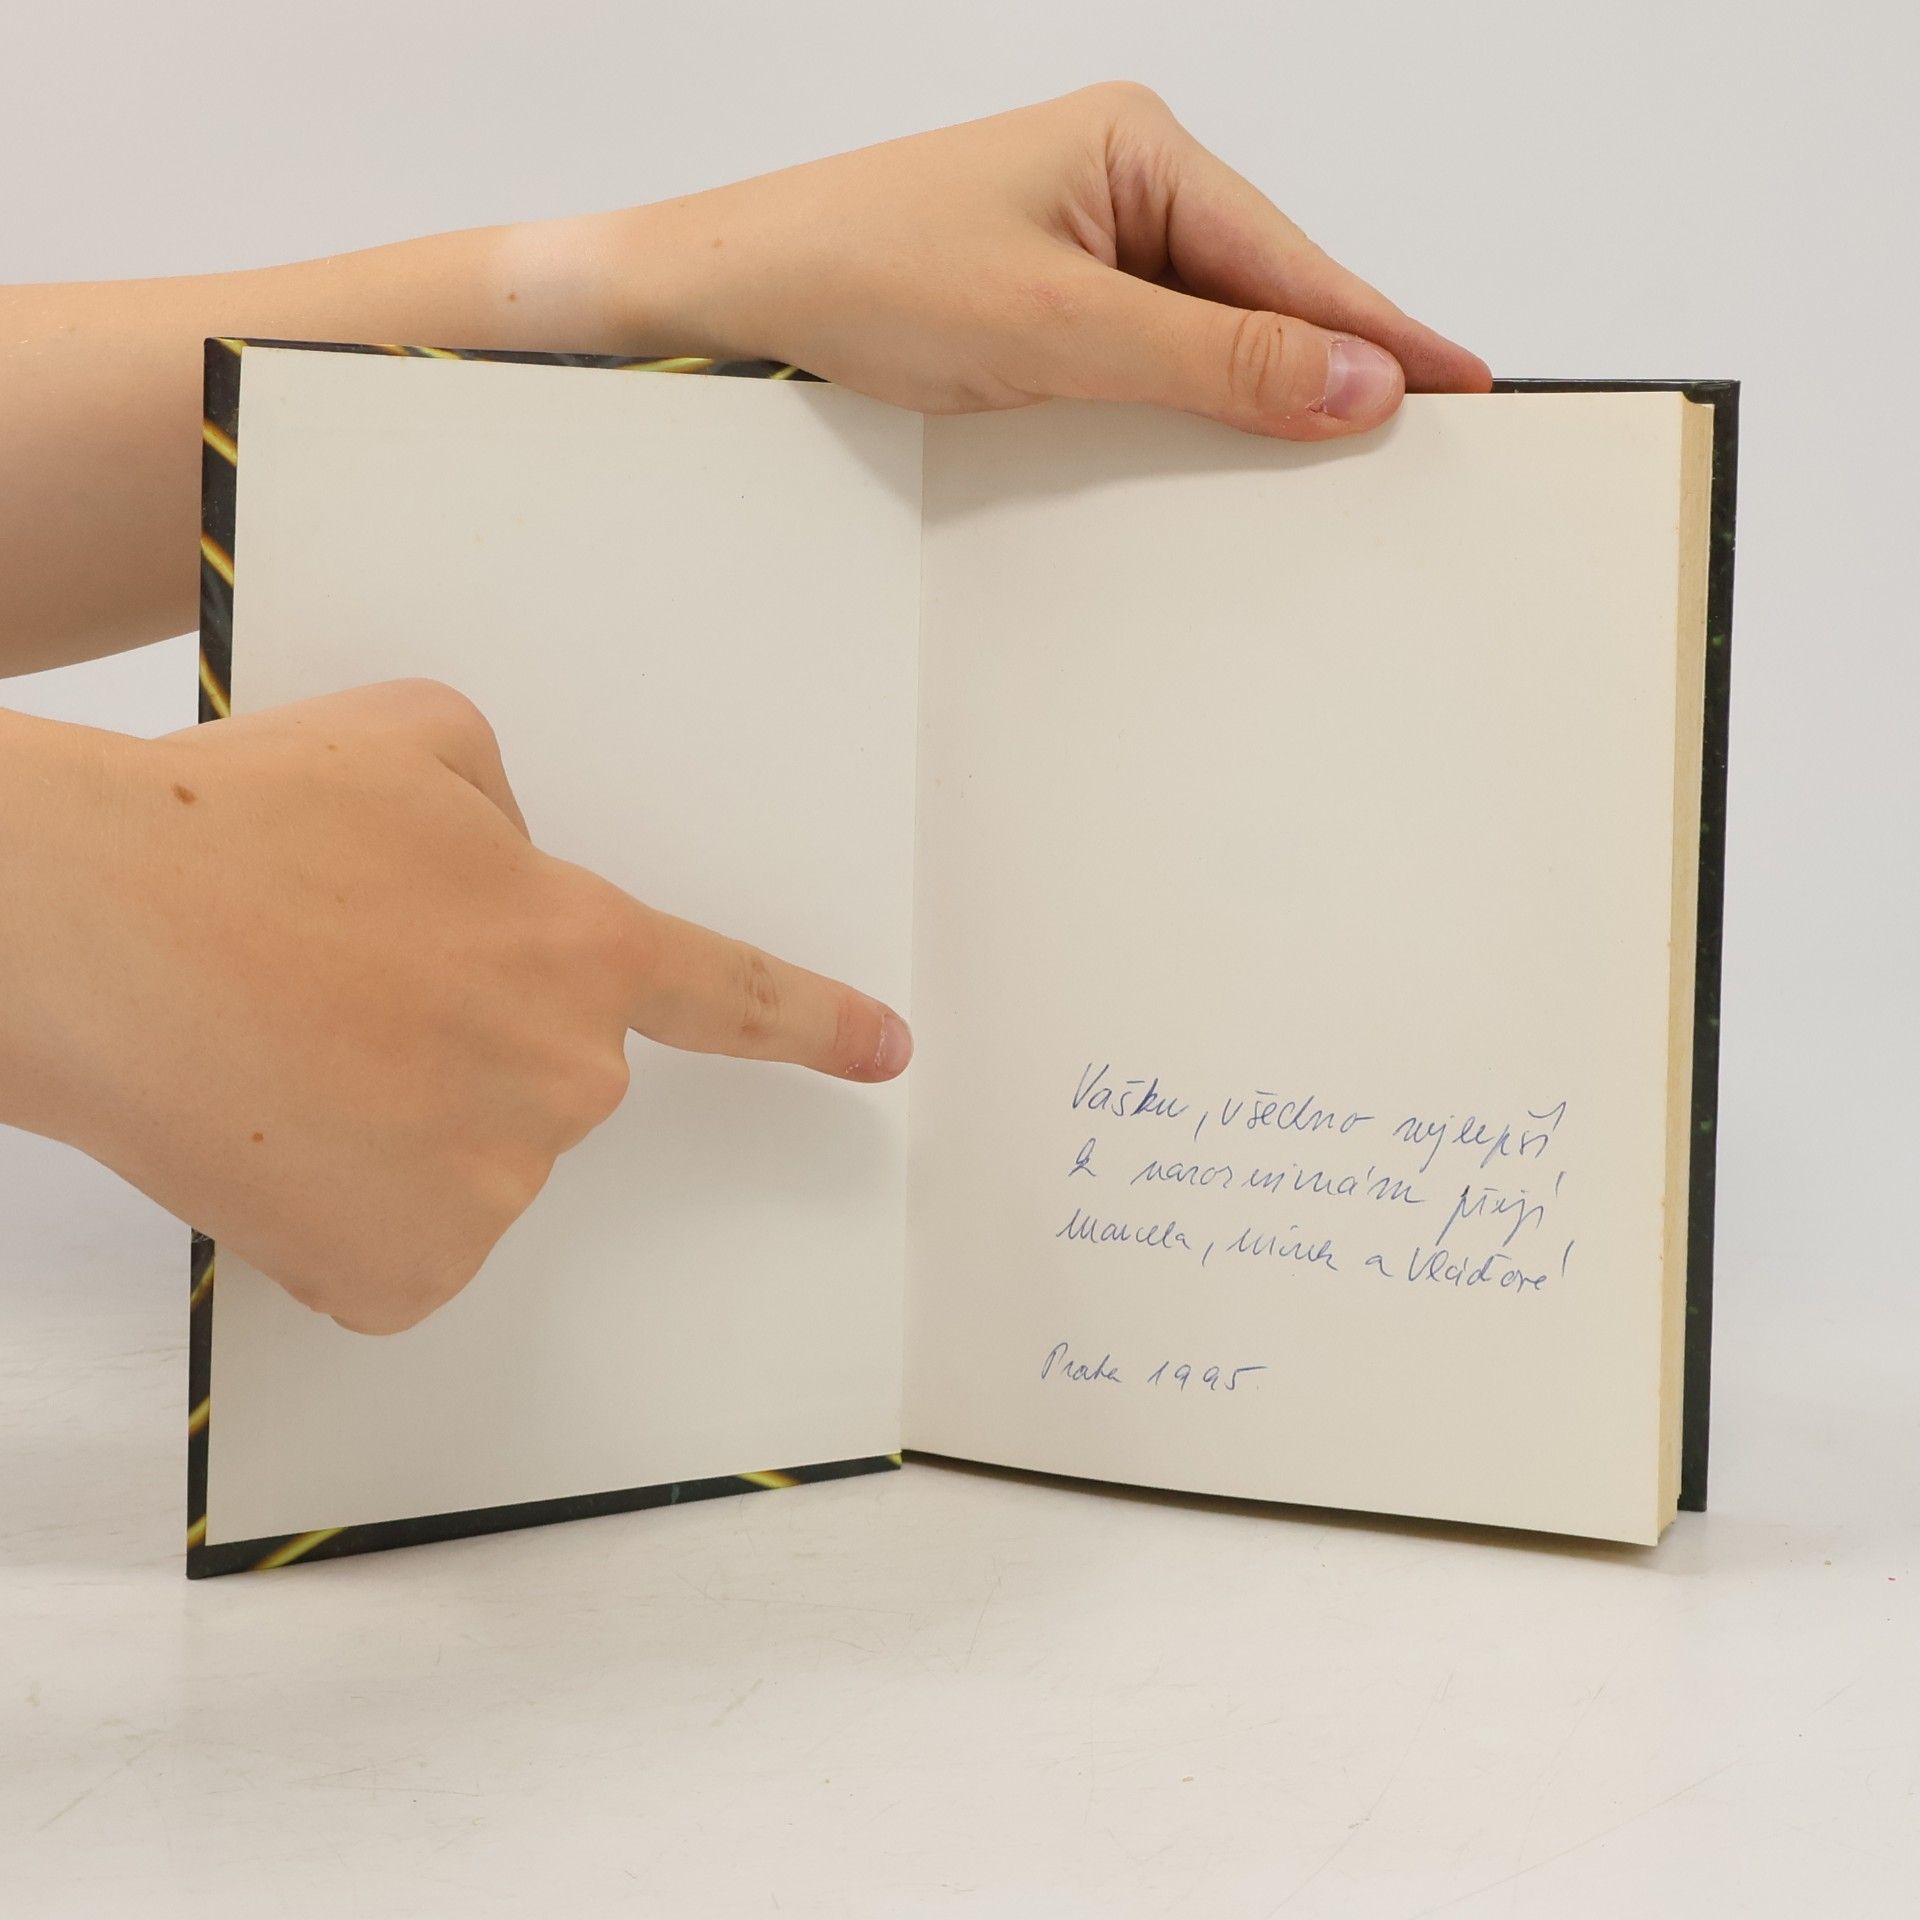 Vašku, všechno nejlepší
k narozeninám přejí
Marcela, Mirek a Vláďové
Praha 1995.